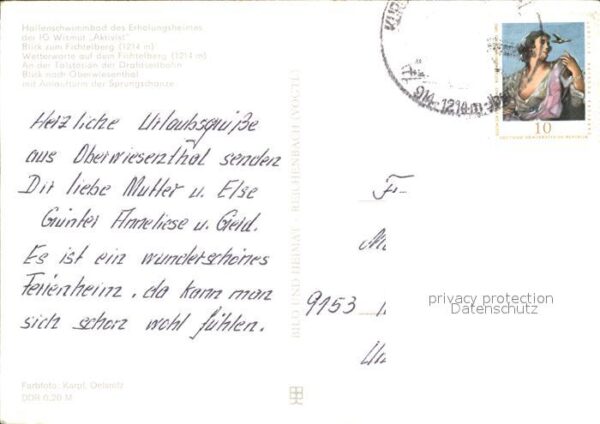 Hallenschwimmbad des Erholungsheimes
der IG Wismut „Aktivist"
Blick zum Fichtelberg (1214 m)
Wetterwarte auf dem Fichtelberg (1214 m)
An der Talstation der Drahtseilbahn
Blick nach Oberwiesenthal
mit Anlaufturm der Sprungschanze
Herzliche Urlaubsgrüße
aus Oberwiesenthal senden
Dir liebe Mutter u. Else
Günter Anneliese u. Gerd.
Es ist ein wunderschönes
Ferienheim, da kann man
sich schon wohl fühlen.
Farbfoto: Karpf, Oelsnitz
DDR 0,20 M
BILD UND HEIMAT REICHENBACH (VOGTL)
10
DEUTSCHE DEMOKRATISCHE REPUBLIK
914-1214 m
9153
privacy protection
Datenschutz